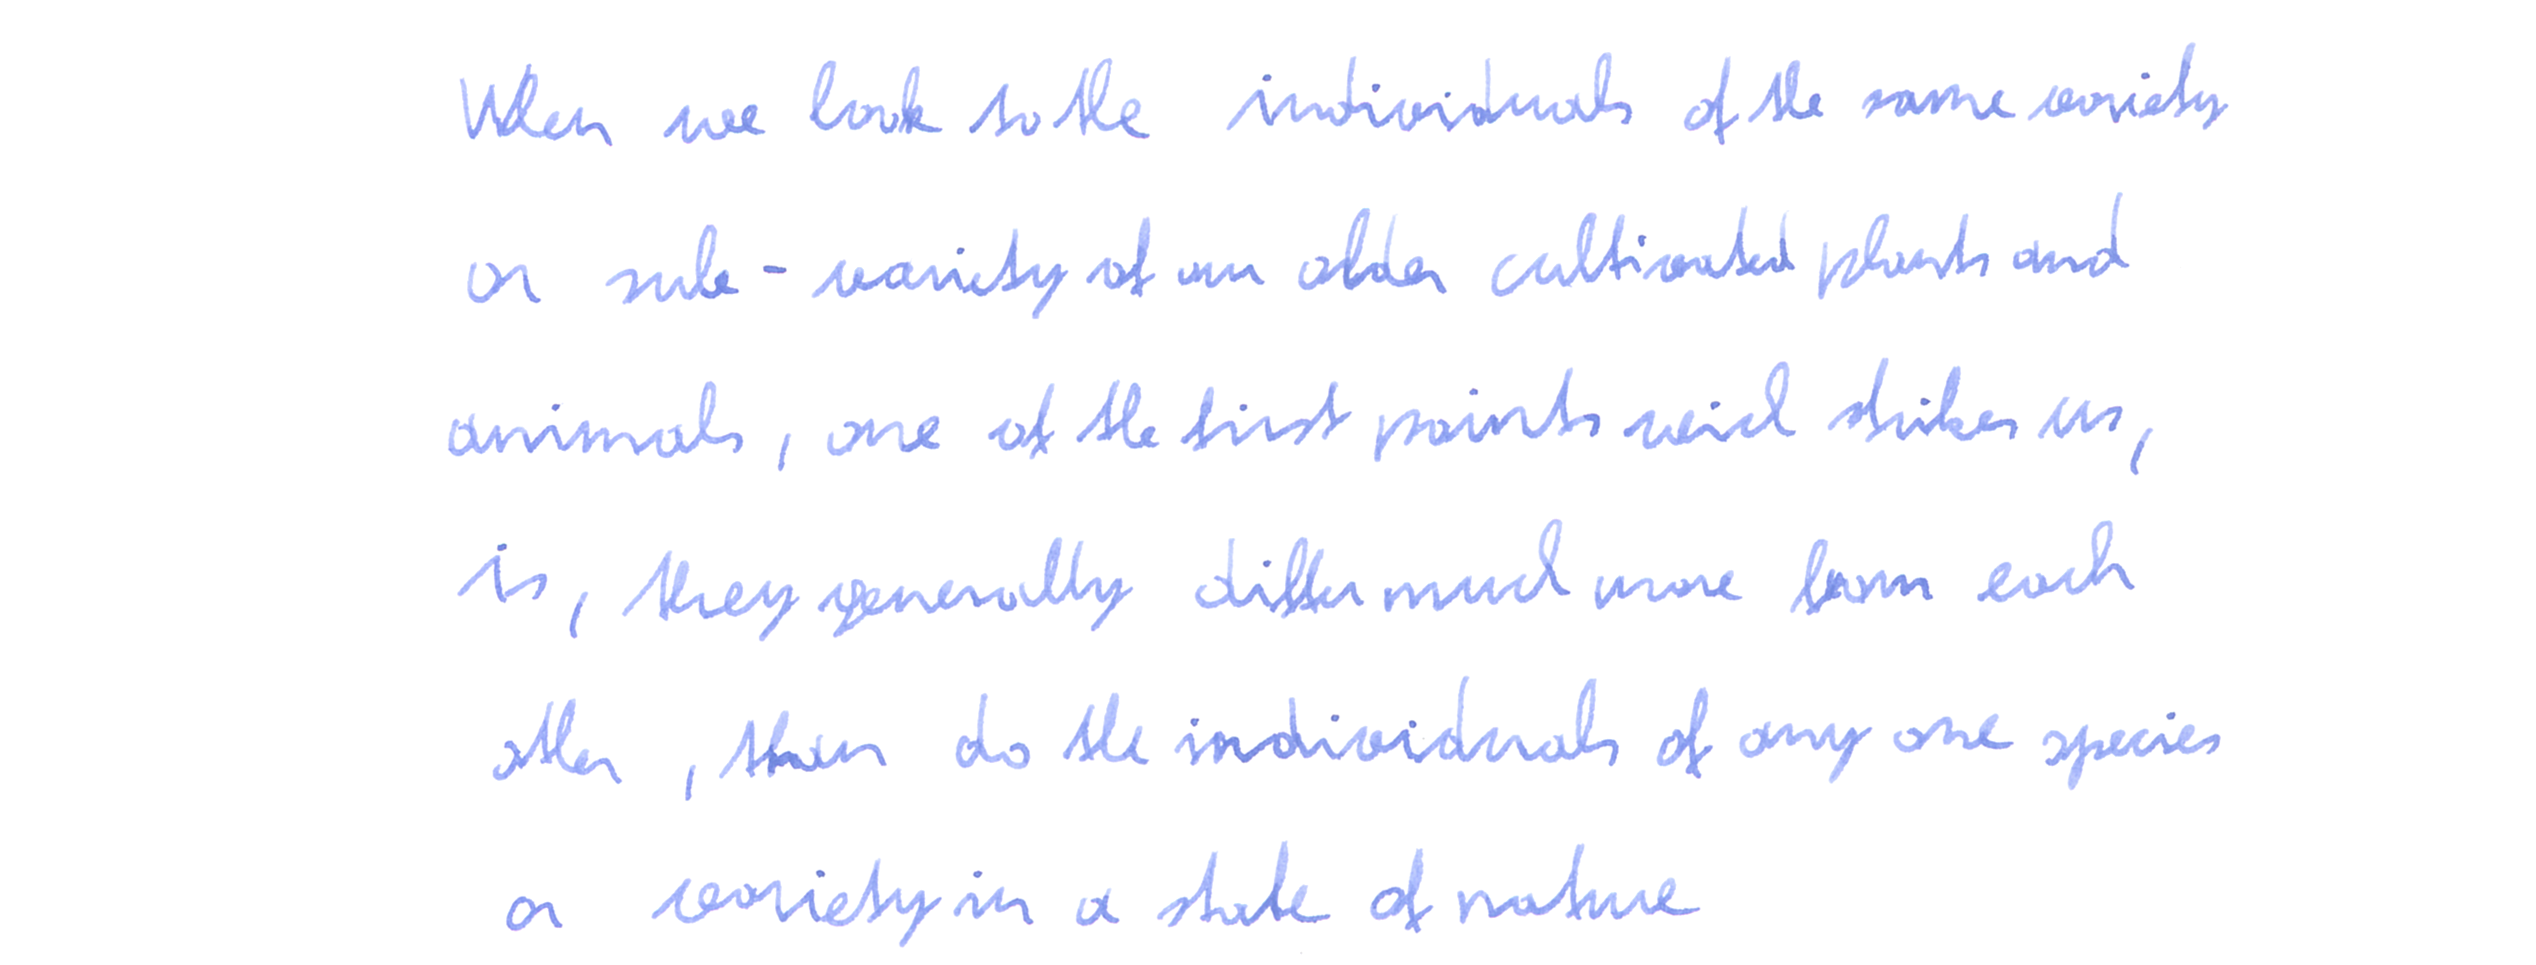 When we look to the individuals of the same variety
or sub-variety of our older cultivated plants and
animals, one of the first points wich strikes us,
is, they generally differ much more from each
other, than do the individuals of any one species
or variety in a state of nature